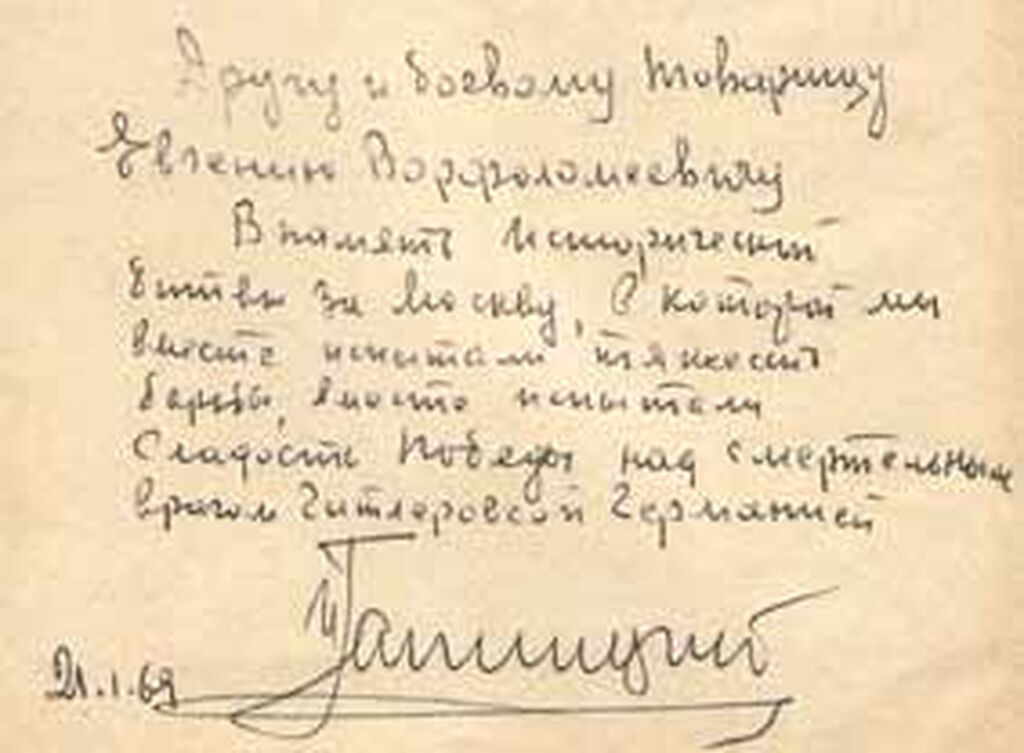 Другу и боевому товарищу
Евгению Варфоломеевичу
В память исторической
битвы за Москву, в которой мы
вместе испытали тяжесть
борьбы, вместе испытали
сладость Победы над смертельным
врагом Гитлеровской Германией
21.1.69